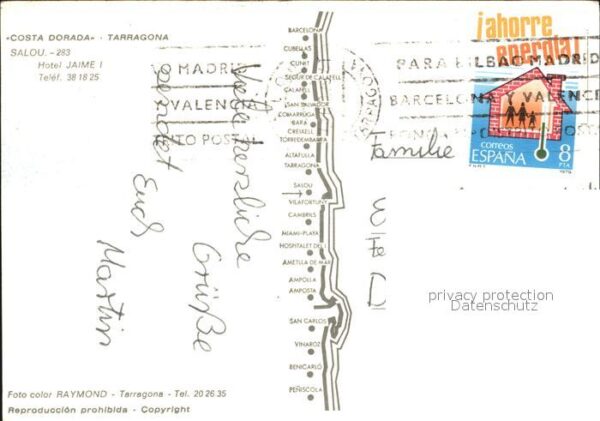 «COSTA DORADA» - TARRAGONA
SALOU. - 283
Hotel JAIME I
Teléf. 38 18 25
BARCELONA
CUBELLAS
CUNIT
SEGUR DE CALAFELL
CALAFELL
SAN SALVADOR
COMARRUGA
BARA
CREIXELL
TORREDEMBARRA
ALTAFULLA
TARRAGONA
SALOU
VILAFORTUNY
CAMBRILS
MIAMI-PLAYA
HOSPITALET DEL I.
AMETLLA DE MAR
AMPOLLA
AMPOSTA
SAN CARLOS
VINAROZ
BENICARLÓ
PEÑISCOLA
MADRID
VALENC
TO POSTAL
PARA BILBAO MADRID
BARCELONA Y VALENC
¡ahorre
energía!
correos
ESPAÑA
8
PTA
1979
Viele herzliche
Grüße
sendet
Euch
Martin
Familie
D
privacy protection
Datenschutz
Foto color RAYMOND - Tarragona - Tel. 20 26 35
Reproducción prohibida - Copyright